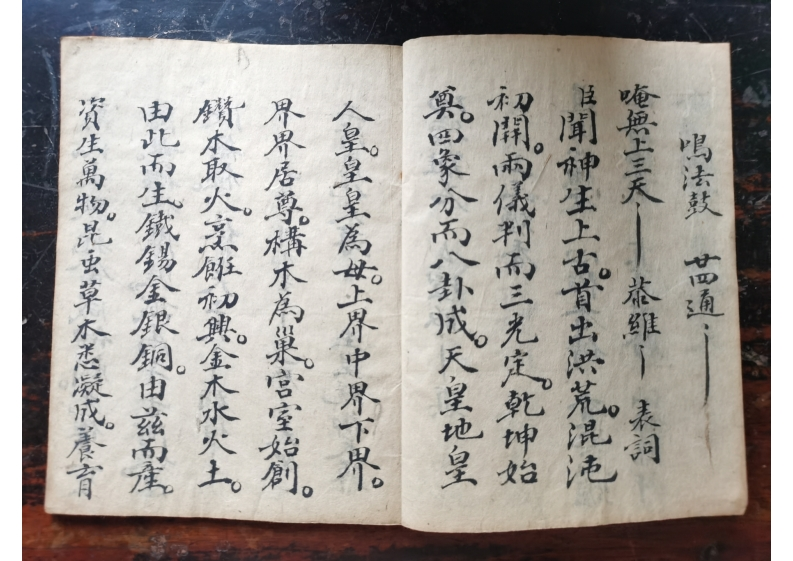 鳴法鼓 廿四通
唵無上三天 恭維 表詞
臣聞神生上古。首出洪荒。混沌
初開。兩儀判而三光定。乾坤始
奠。四象分而八卦成。天皇地皇
人皇。皇皇為母。上界中界下界。
界界居尊。構木為巢。宮室始創。
鑽木取火。烹飪初興。金木水火土。
由此而生。鐵錫金銀銅。由茲而產。
資生萬物。昆虫草木悉凝成。養育